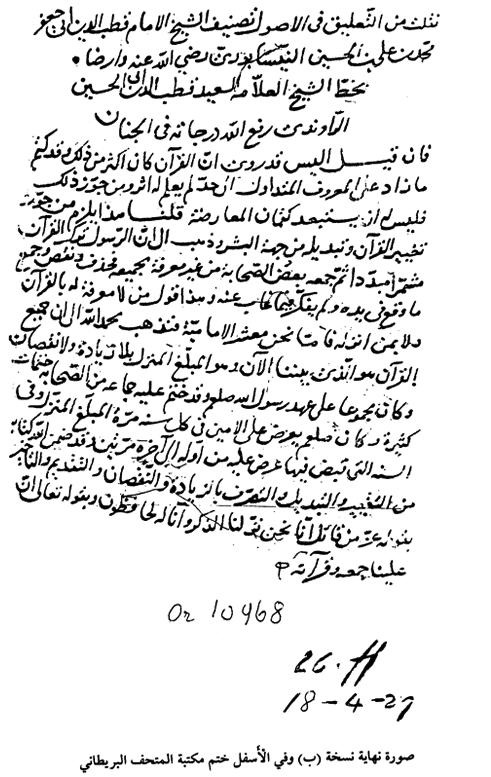 نقلت من التعليق في الاصول تصنيف الشيخ الامام قطب الدين ابي جعفر
محمد بن علي بن الحسين النيسابوري رضي الله عنه وارضاه
بخط الشيخ العلامة السعيد قطب الدين ابي الحسين
الراوندي رفع الله درجاته في الجنان
فان قيل اليس قد روي ان القرآن كان اكثر من ذلك وقد كتم
ما زاد على المعروف المتداول الى حد لم يعلم له اثر ومن جوز ذلك
فليس له ان يستبعد كتمان المعارضة قلنا هذا يلزم من جوز
تغيير القرآن وتبديله من جهة البشر وذهب الى ان الرسول ترك القرآن
ثم جمعه بعض الصحابة من غير معرفة بجميعه فحذف ونقص وجمع
ما وقع في يده ولم يفكر فيما غاب عنه وهذا قول من لا معرفة له بالقرآن
ولا بمن انزله فاما نحن معشر الامامية فنذهب بحمد الله الى ان جميع
القرآن هو الذي بيننا الآن وهو المبلغ المنزل بلا زيادة ولا نقصان
وكان مجموعا على عهد رسول الله صلعم وقد ختم عليه جماعة من الصحابة ختمات
كثيرة وكان صلعم يعرض على الامين في كل سنة مرة المبلغ المنزل وفي
السنة التي قبض فيها عرض عليه من اوله الى آخره مرتين وقد ضمن الله كتابه
من التغيير والتبديل والتصرف بالزيادة والنقصان والتقديم والتأخير
بقوله عز من قائل انا نحن نزلنا الذكر وانا له لحافظون وبقوله تعالى ان
علينا جمعه وقرآنه
Or 10968
26. ff
18-4-27
صورة نهاية نسخة (ب) وفي الأسفل ختم مكتبة المتحف البريطاني